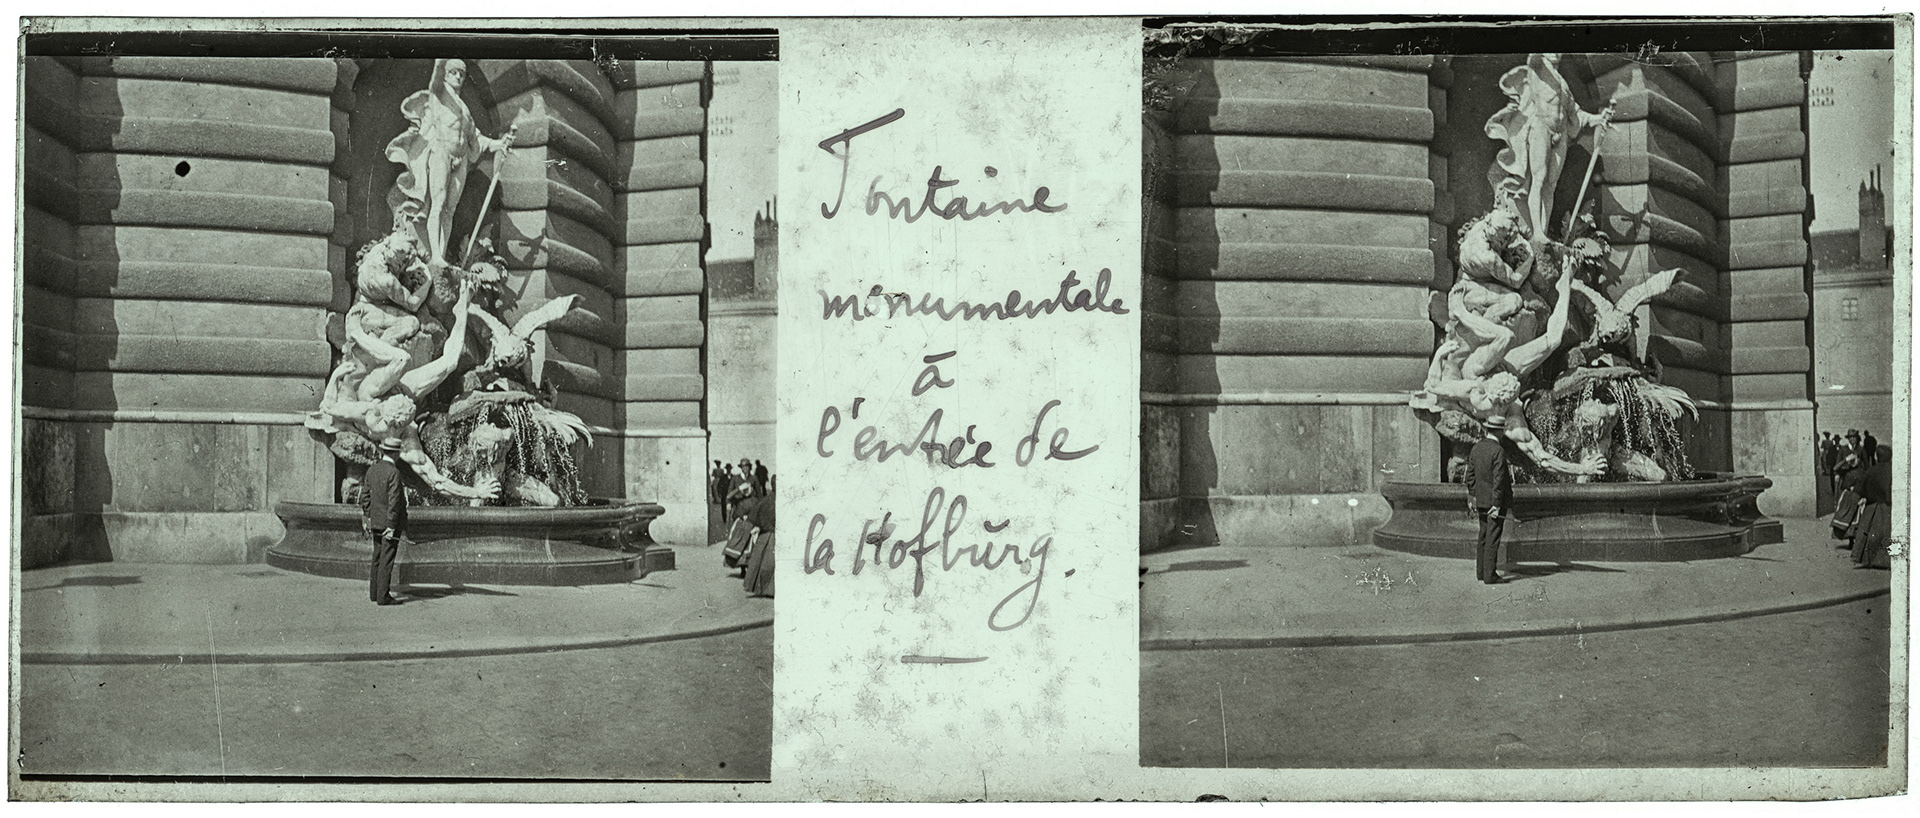 Fontaine
monumentale
à
l'entrée de
la Hofbŭrg.